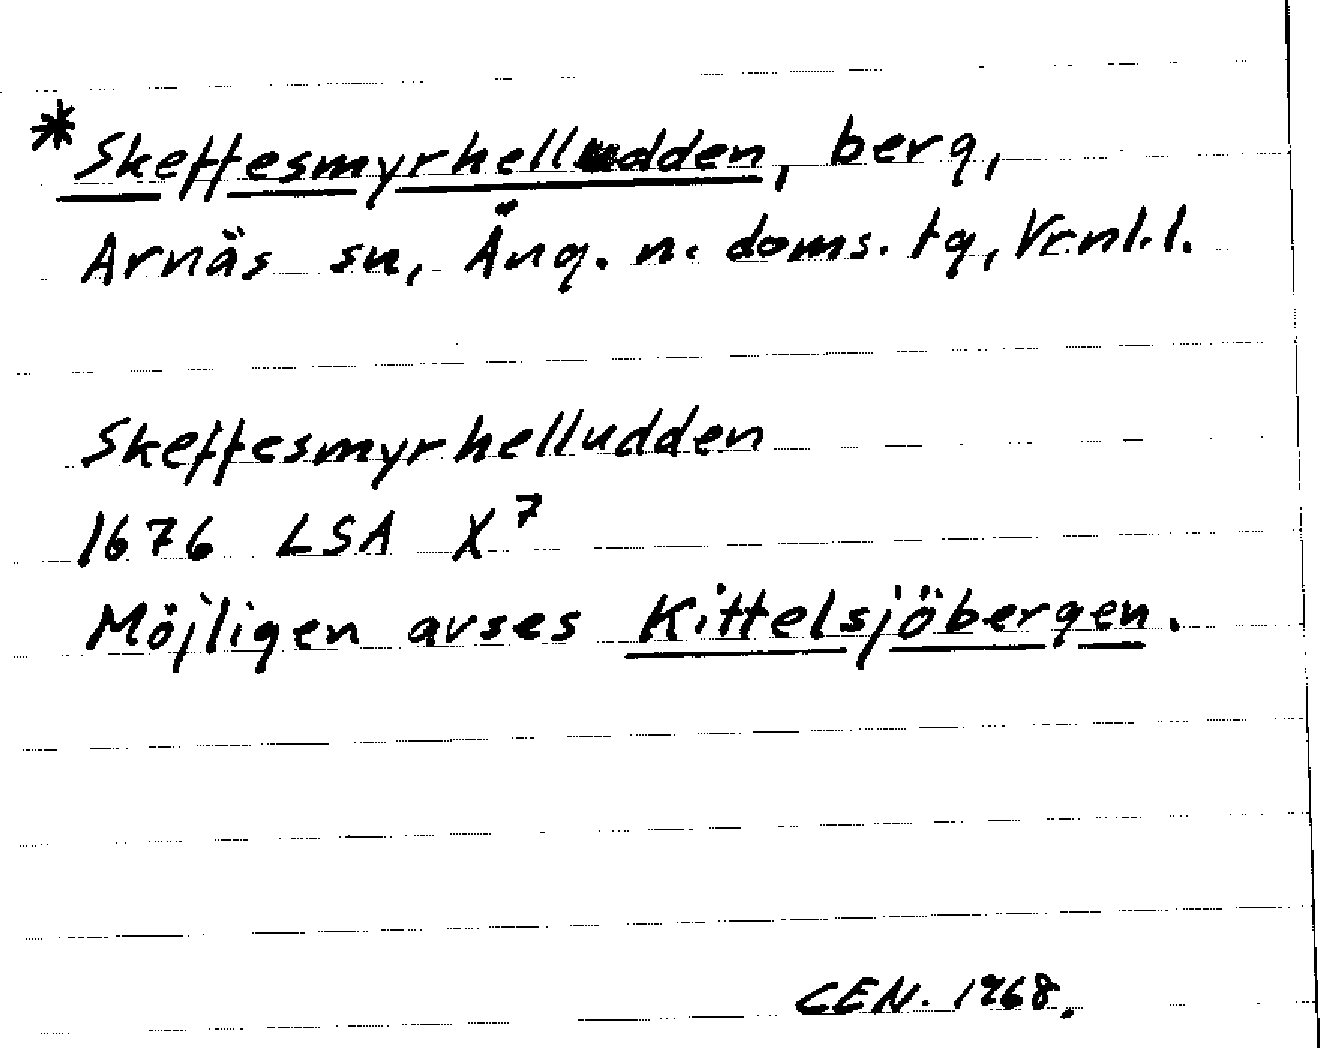 *Skeffesmyrhelludden, berg,
Arnäs sn, Ång. n. doms. tg, Vrnl.l.
Skeffesmyrhelludden
1676 LSA X⁷
Möjligen avses Kittelsjöbergen.
CEN. 1968.